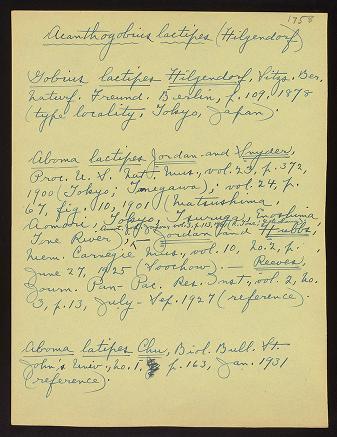 1758
Acanthogobius lactipes (Hilgendorf)
Gobius lactipes Hilgendorf, Sitzs. Ber.
naturf. Freund. Berlin, p. 109, 1878
(type locality, Tokyo, Japan).
Aboma lactipes Jordan and Snyder,
Proc. U. S. Nat. Mus., vol. 23, p. 372,
1900 (Tokyo; Tonegawa); vol. 24, p.
67, fig. 10, 1901 (Matsushima,
Aomori, Tokyo, Tsuruga, Enoshima,
Tone River); — Jordan and Hubbs,
Mem. Carnegie Mus., vol. 10, no. 2, p.
June 27, 1925 (Soochow). — Reeves,
Journ. Pan-Pac. Res. Inst., vol. 2, no.
3, p. 13, July-Sep. 1927 (reference).
Aboma latipes Chu, Biol. Bull. St.
John's Univ., no. 1, p. 163, Jan. 1931
(reference).